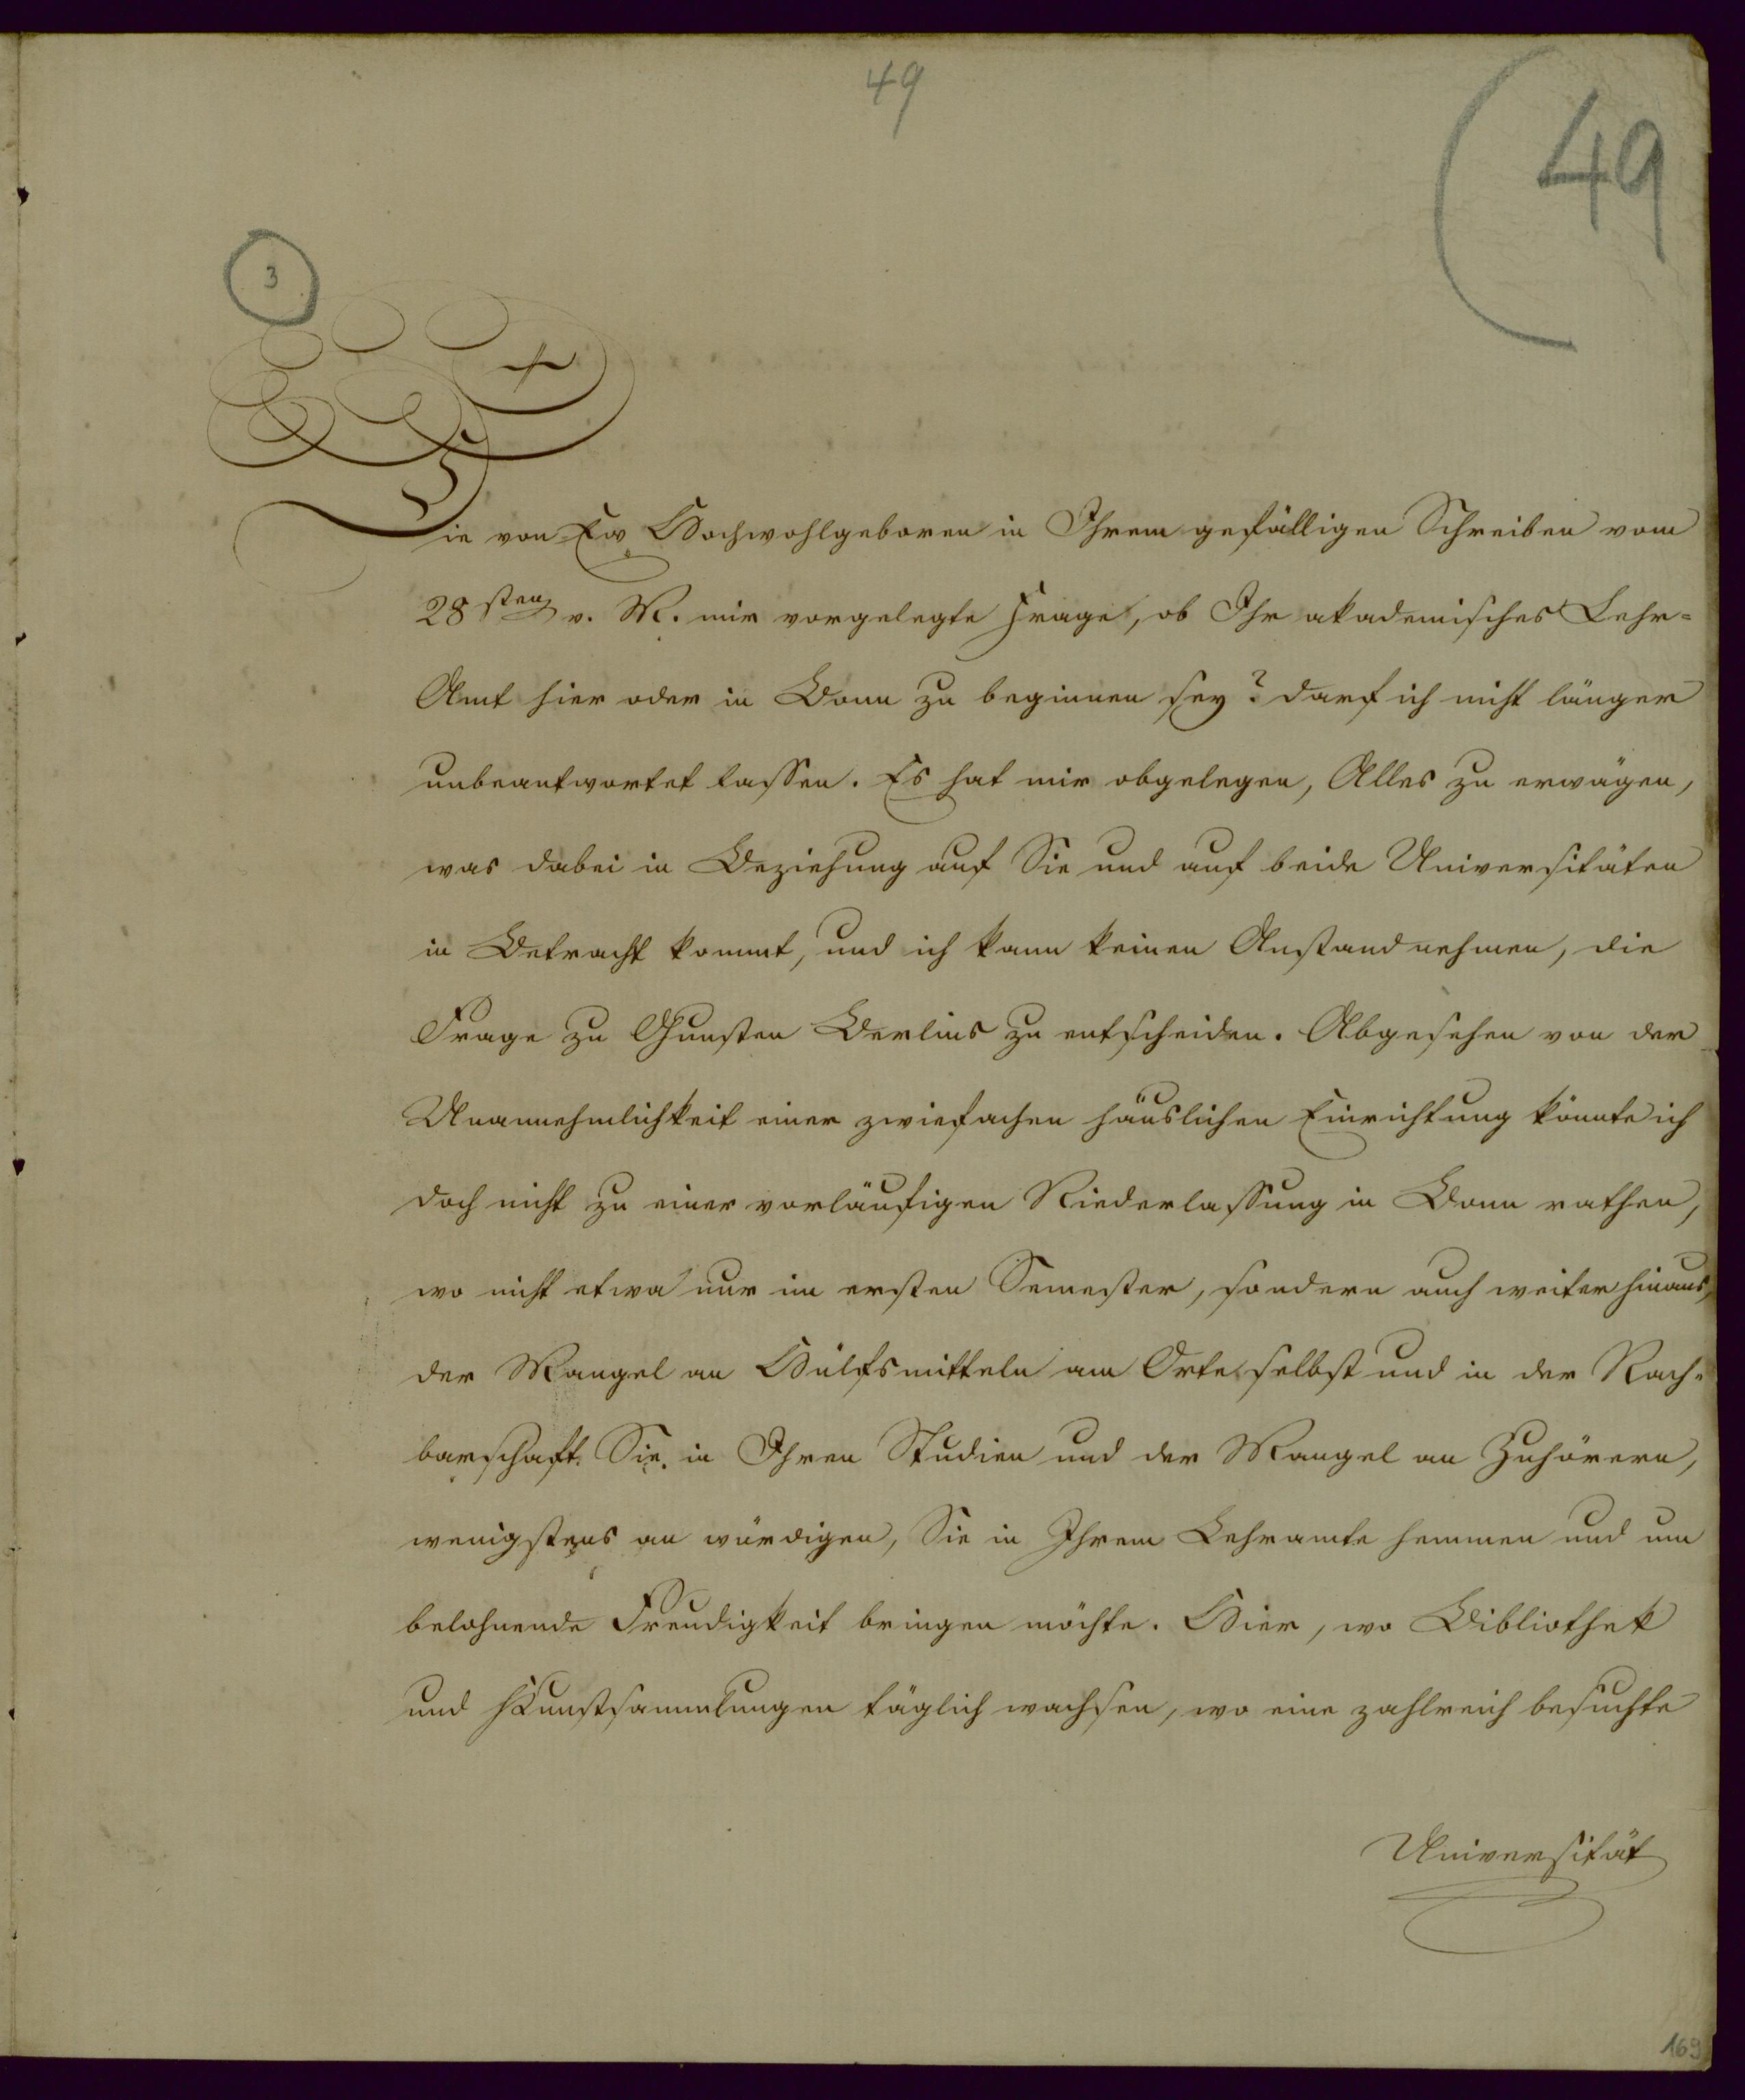 49
49
3
Die von Ew Hochwohlgeboren in Ihrem gefälligen Schreiben vom
28sten v. M. mir vorgelegte Frage, ob Ihr akademisches Lehr-
Amt hier oder in Bonn zu beginnen sey? darf ich nicht länger
unbeantwortet lassen. Es hat mir obgelegen, Alles zu erwägen,
was dabei in Beziehung auf Sie und auf beide Universitäten
in Betracht kommt, und ich kann keinen Anstand nehmen, die
Frage zu Gunsten Berlins zu entscheiden. Abgesehen von der
Unannehmlichkeit einer zwiefachen häuslichen Einrichtung könnte ich
doch nicht zu einer vorläufigen Niederlassung in Bonn rathen,
wo nicht etwa nur im ersten Semester, sondern auch weiter hinaus,
der Mangel an Hülfsmitteln am Orte selbst und in der Nach-
barschaft Sie in Ihren Studien und der Mangel an Zuhörern,
wenigstens an würdigen, Sie in Ihrem Lehramte hemmen und um
belohnende Freudigkeit bringen möchte. Hier, wo Bibliothek
und Kunstsammlungen täglich wachsen, wo eine zahlreich besuchte
Universität
169